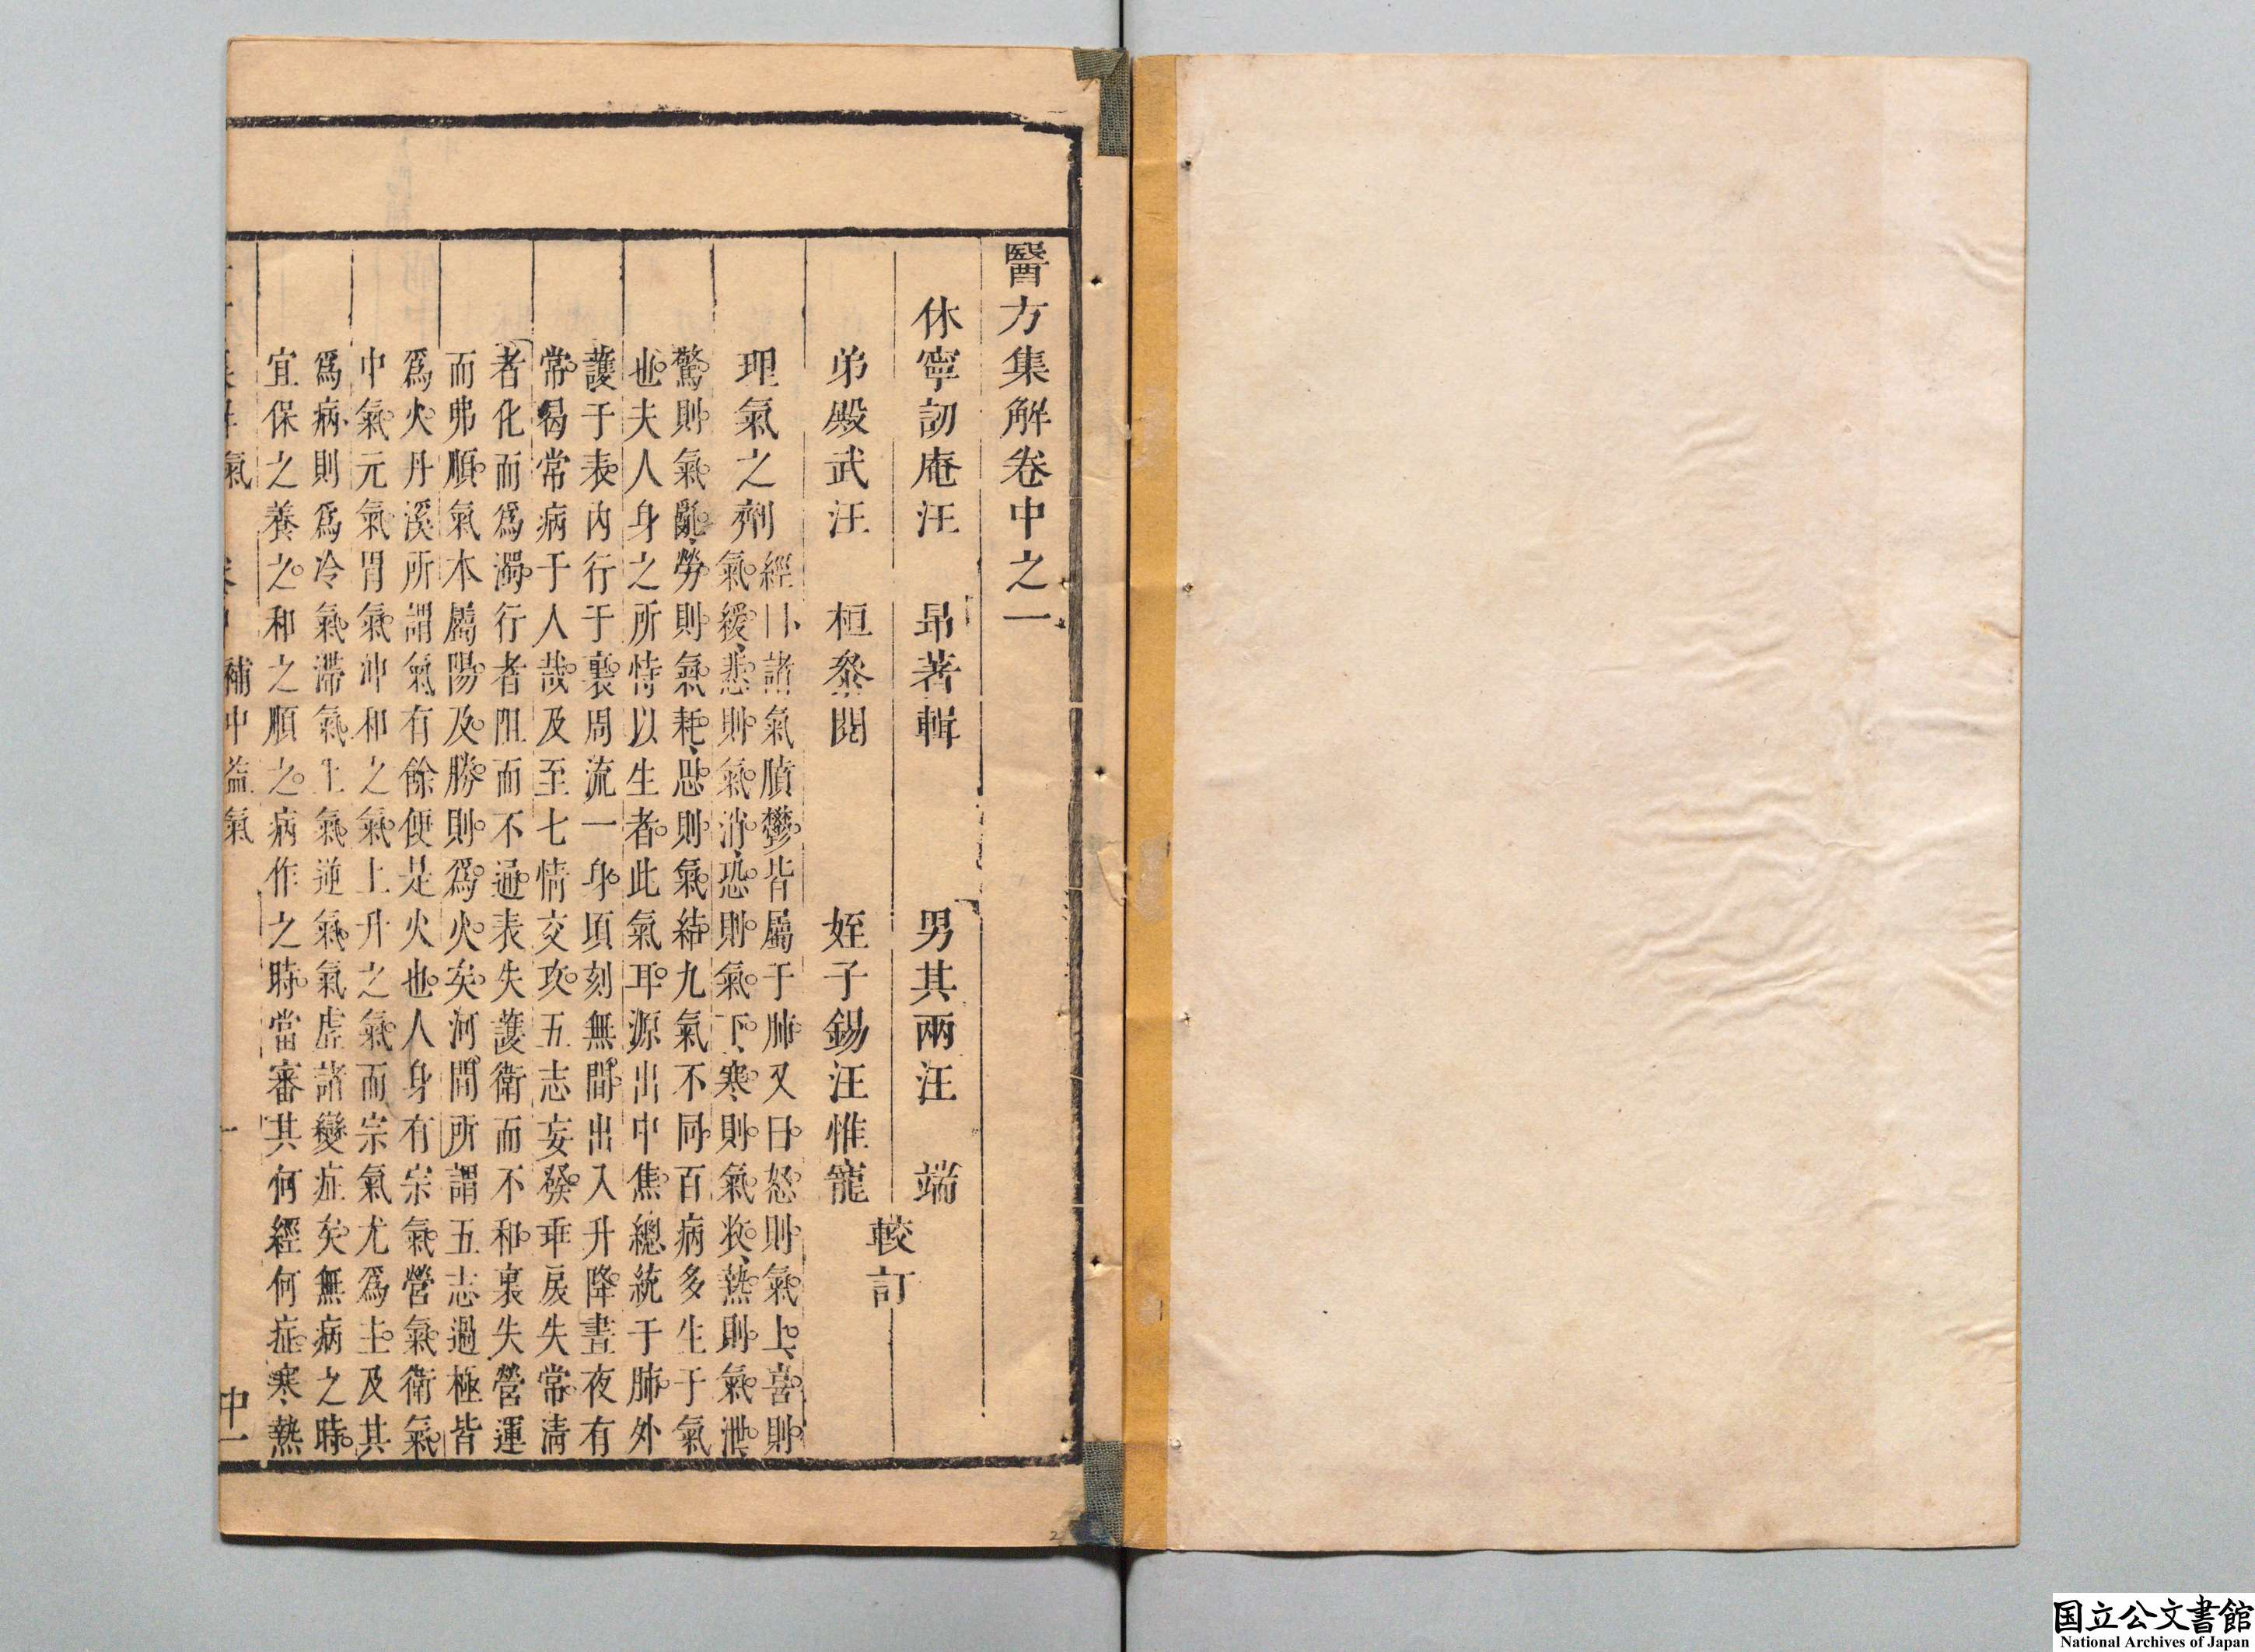 醫方集解卷中之一
休寧訒庵汪　昂著輯　男其兩汪　端
弟殿武汪　桓叅閱　姪子錫汪惟寵
較訂
理氣之劑
經曰諸氣膹鬱皆屬于肺又曰怒則氣上喜則
氣緩悲則氣消恐則氣下寒則氣收熱則氣泄
驚則氣亂勞則氣耗思則氣結九氣不同百病多生于氣
也夫人身之所恃以生者此氣耳源出中焦總統于肺外
護于表内行于裏周流一身頃刻無間出入升降晝夜有
常曷常病于人哉及至七情交攻五志妄發乖戾失常清
者化而爲濁行者阻而不通表失護衛而不和裏失營運
而弗順氣本屬陽及勝則爲火矣河間所謂五志過極皆
爲火丹溪所謂氣有餘便是火也人身有宗氣營氣衛氣
中氣元氣胃氣冲和之氣上升之氣而宗氣尤爲主及其
爲病則爲冷氣滯氣上氣逆氣氣虛諸變症矣無病之時
宜保之養之和之順之病作之時當審其何經何症寒熱
氣　補中益氣　一　中一
2
国立公文書館
National Archives of Japan